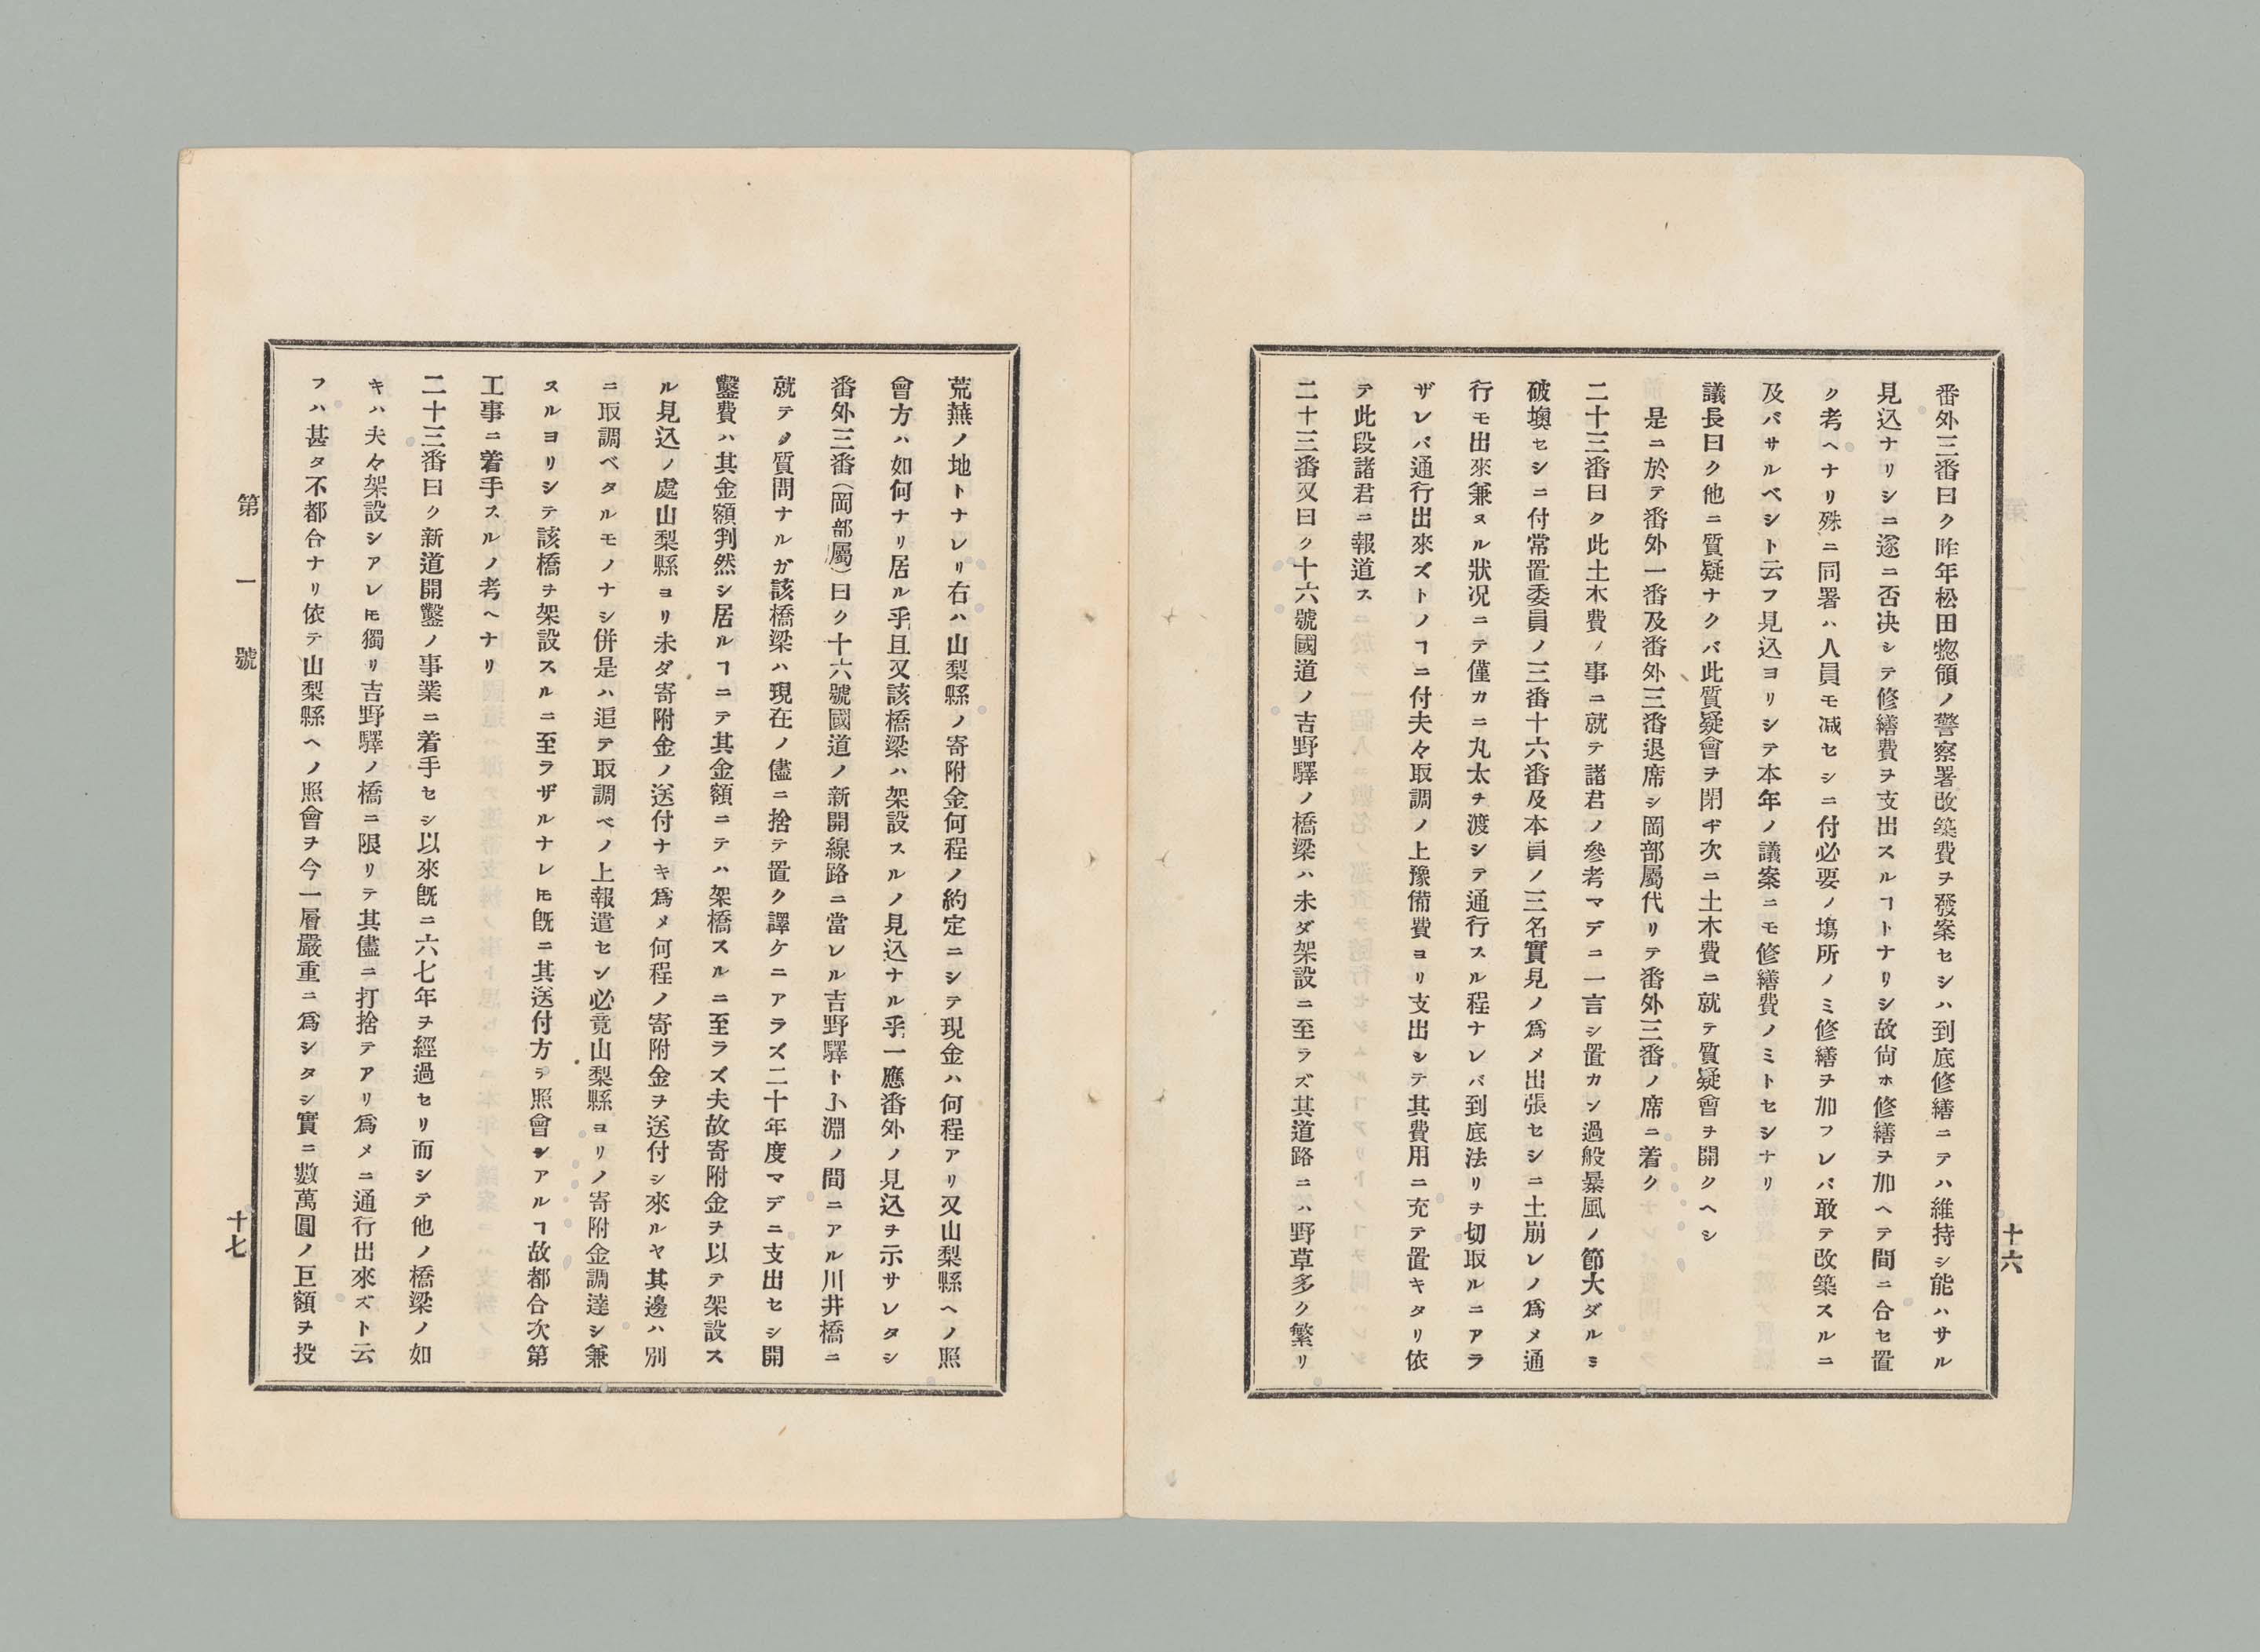 十六
番外三番曰ク昨年松田惣領ノ警察署改築費ヲ發案セシハ到底修繕ニテハ維持シ能ハサル
見込ナリシニ遂ニ否决シテ修繕費ヲ支出スルヿトナリシ故尙ホ修繕ヲ加ヘテ間ニ合セ置
ク考ヘナリ殊ニ同署ハ人員モ减セシニ付必要ノ塲所ノミ修繕ヲ加フレバ敢テ改築スルニ
及バサルベシト云フ見込ヨリシテ本年ノ議案ニモ修繕費ノミトセシナリ
議長曰ク他ニ質疑ナクバ此質疑會ヲ閉ヂ次ニ土木費ニ就テ質疑會ヲ開クヘシ
是ニ於テ番外一番及番外三番退席シ岡部屬代リテ番外三番ノ席ニ着ク
二十三番曰ク此土木費ノ事ニ就テ諸君ノ參考マデニ一言シ置カン過般暴風ノ節大ダルミ
破壞セシニ付常置委員ノ三番十六番及本員ノ三名實見ノ爲メ出張セシニ土崩レノ爲メ通
行モ出來兼ヌル狀况ニテ僅カニ丸太ヲ渡シテ通行スル程ナレバ到底法リヲ切取ルニアラ
ザレバ通行出來ズトノヿニ付夫々取調ノ上豫備費ヨリ支出シテ其費用ニ充テ置キタリ依
テ此段諸君ニ報道ス
二十三番又曰ク十六號國道ノ吉野驛ノ橋梁ハ未ダ架設ニ至ラズ其道路ニハ野草多ク繁リ
荒蕪ノ地トナレリ右ハ山梨縣ノ寄附金何程ノ約定ニシテ現金ハ何程アリ又山梨縣ヘノ照
會方ハ如何ナリ居ル乎且又該橋梁ハ架設スルノ見込ナル乎一應番外ノ見込ヲ示サレタシ
番外三番(岡部屬)曰ク十六號國道ノ新開線路ニ當レル吉野驛ト小淵ノ間ニアル川井橋ニ
就テノ質問ナルガ該橋梁ハ現在ノ儘ニ捨テ置ク譯ケニアラズ二十年度マデニ支出セシ開
鑿費ハ其金額判然シ居ルヿニテ其金額ニテハ架橋スルニ至ラズ夫故寄附金ヲ以テ架設ス
ル見込ノ處山梨縣ヨリ未ダ寄附金ノ送付ナキ爲メ何程ノ寄附金ヲ送付シ來ルヤ其邊ハ別
ニ取調ベタルモノナシ併是ハ追テ取調ベノ上報道セン必竟山梨縣ヨリノ寄附金調達シ兼
ヌルヨリシテ該橋ヲ架設スルニ至ラザルナレ𪜈旣ニ其送付方ヲ照會シアルヿ故都合次第
工事ニ着手スルノ考ヘナリ
二十三番曰ク新道開鑿ノ事業ニ着手セシ以來旣ニ六七年ヲ經過セリ而シテ他ノ橋梁ノ如
キハ夫々架設シアレ𪜈獨リ吉野驛ノ橋ニ限リテ其儘ニ打捨テアリ爲メニ通行出來ズト云
フハ甚タ不都合ナリ依テ山梨縣ヘノ照會ヲ今一層嚴重ニ爲シタシ實ニ數萬圓ノ巨額ヲ投
第一號
十七